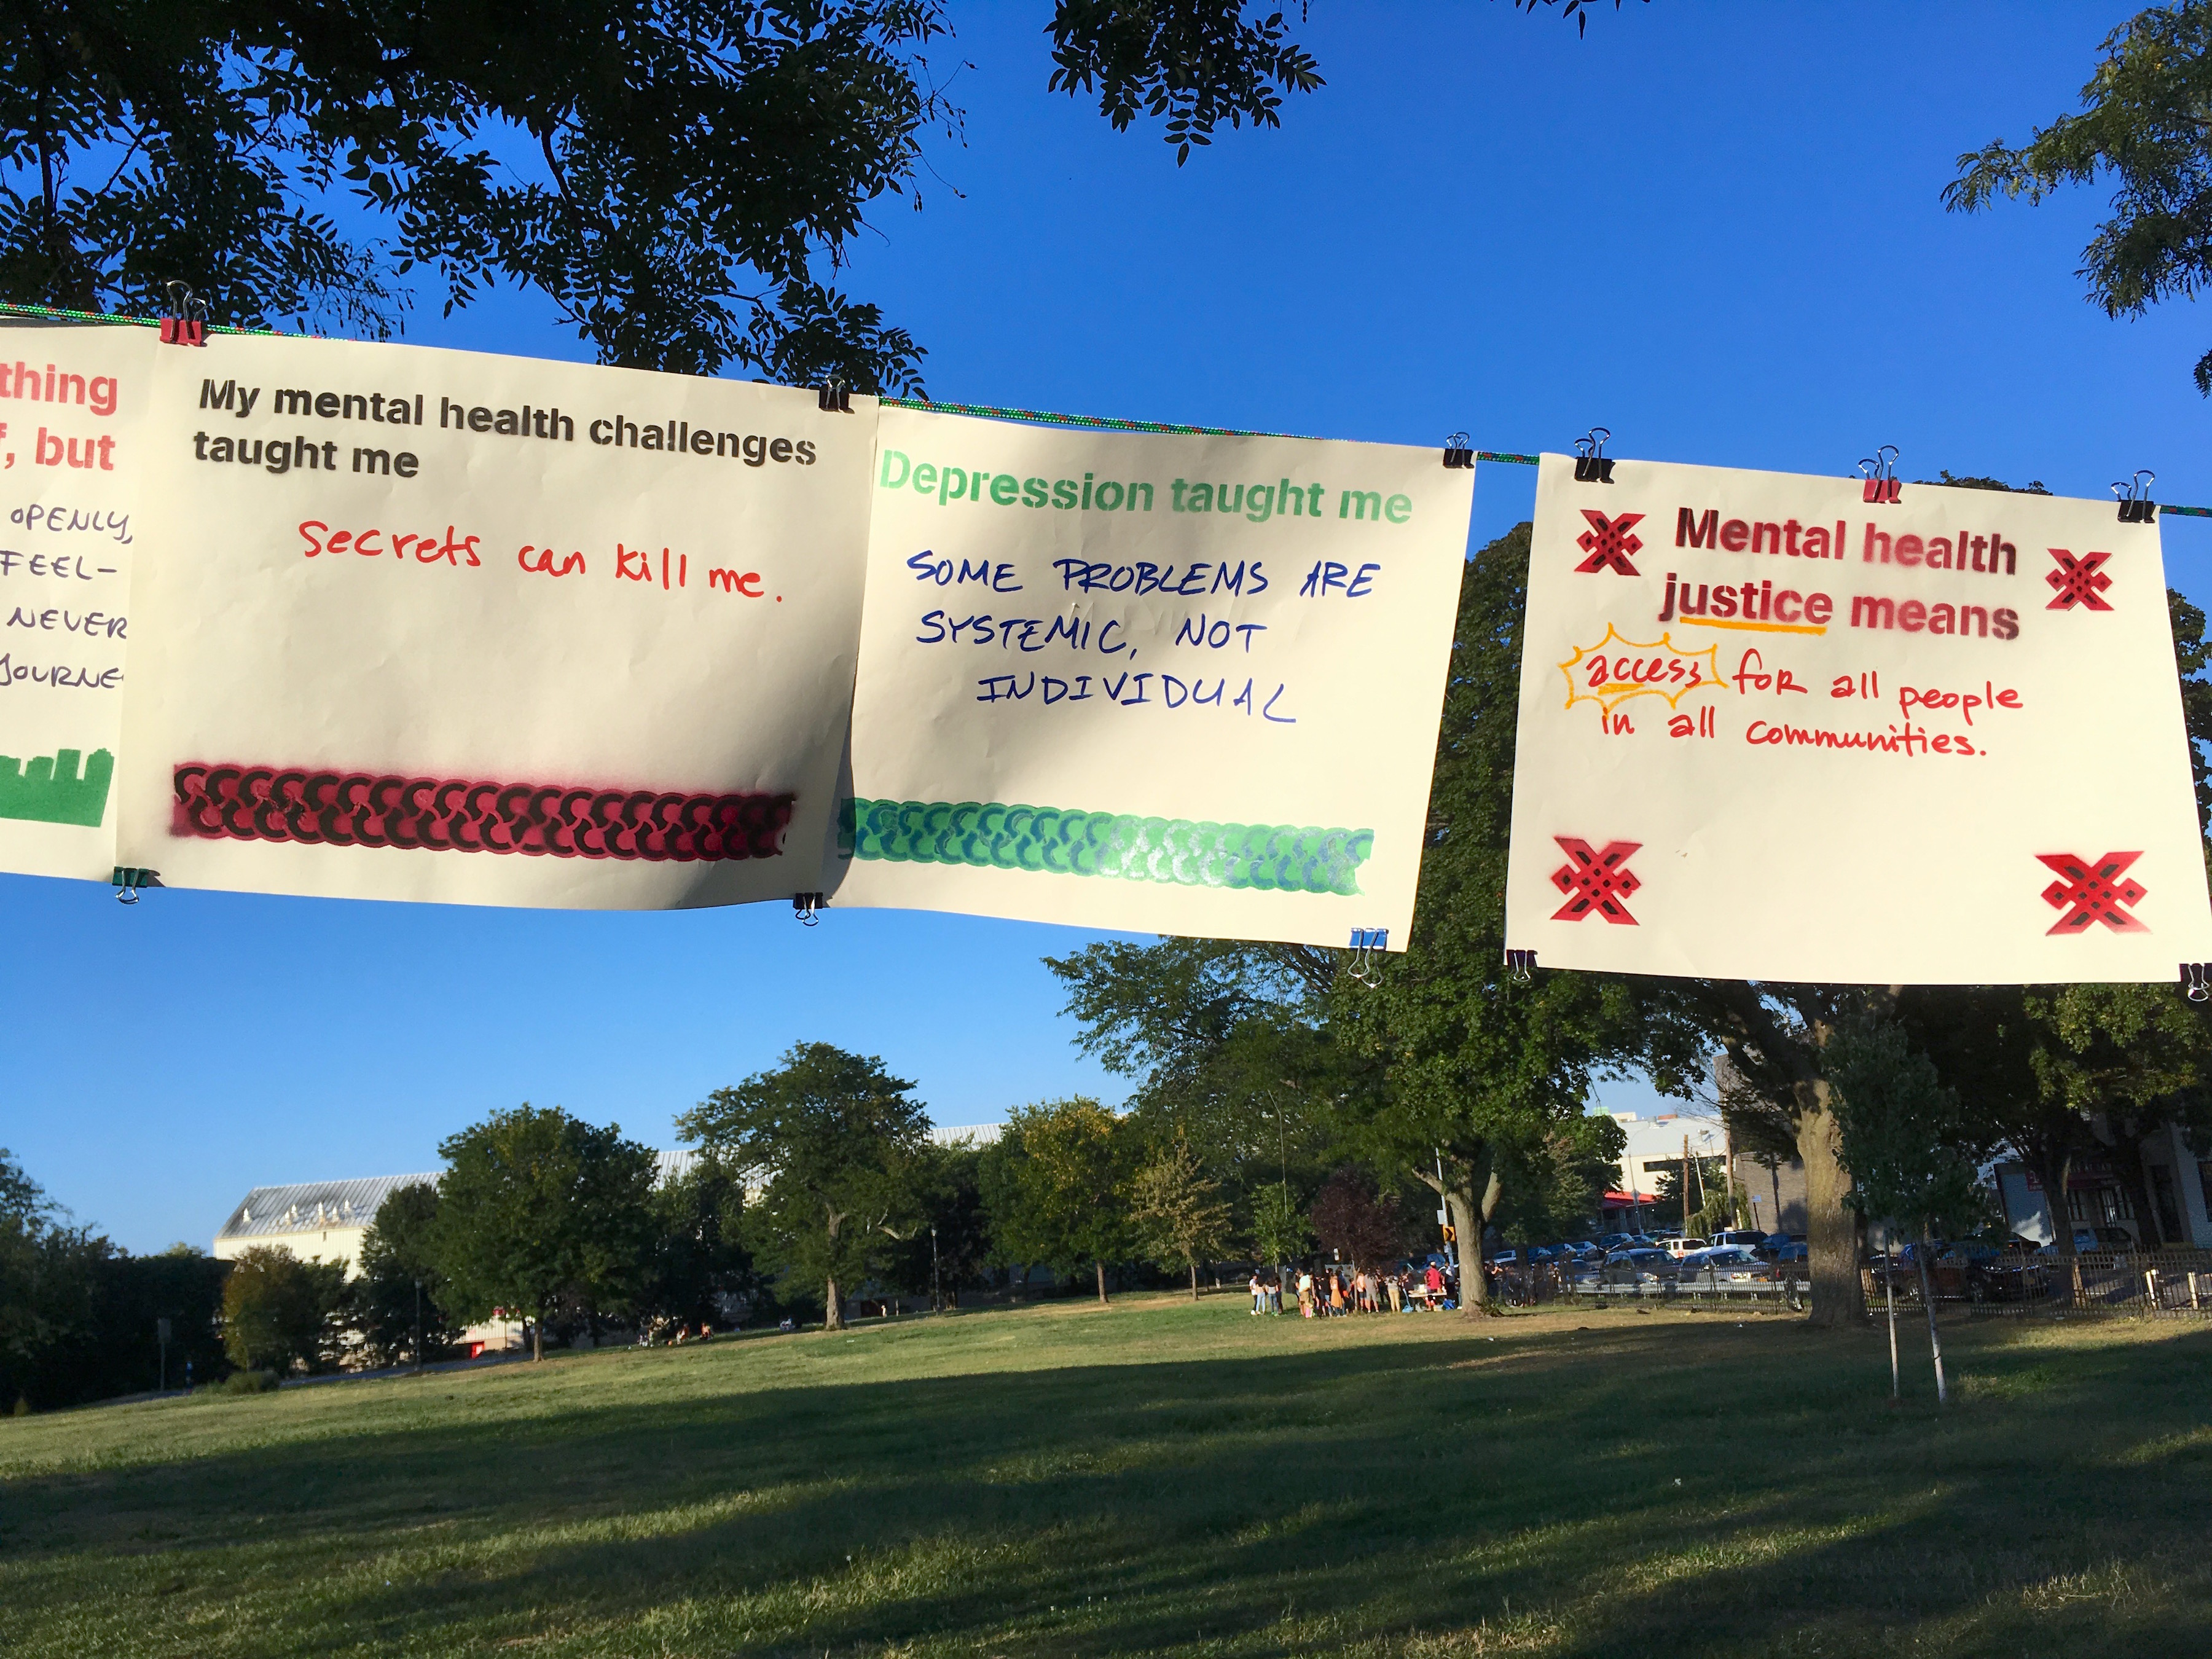 thing
, but
OPENLY,
FEEL-
NEVER
My mental health challenges
taught me
Secrets can kill me.
Depression taught me
SOME PROBLEMS ARE
SYSTEMIC, NOT
INDIVIDUAL
Mental health
justice means
access for all people
in all communities.